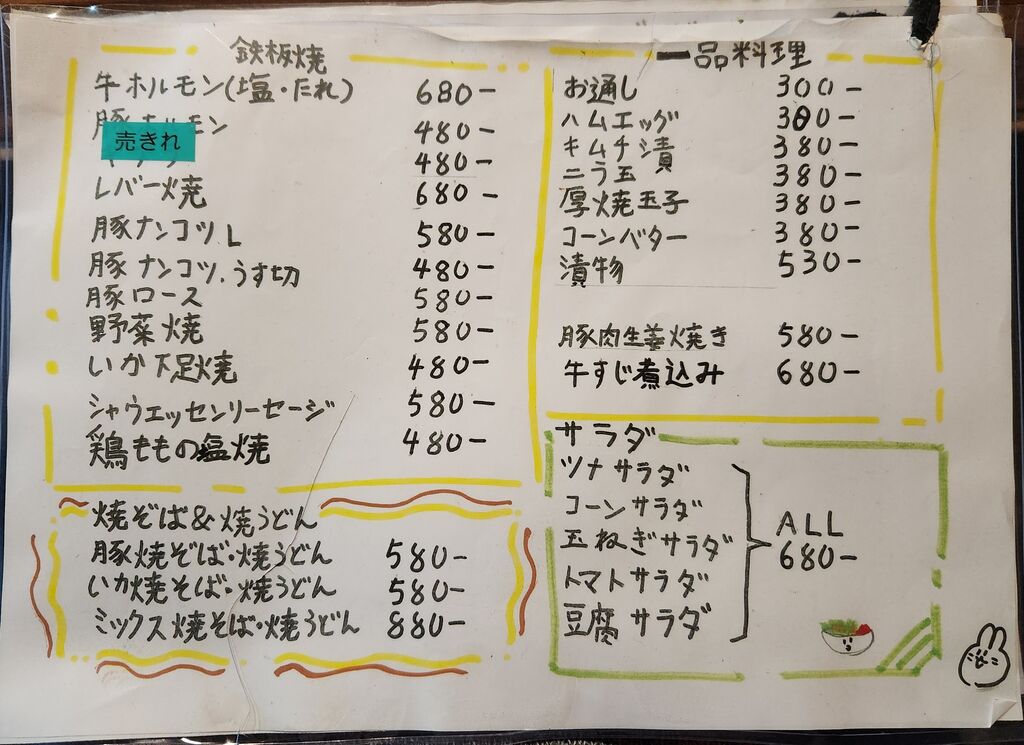 鉄板焼
牛ホルモン(塩・たれ) 680-
豚ホルモン 480-
売きれ
480-
レバー焼 680-
豚ナンコツL 580-
豚ナンコツ.うす切 480-
豚ロース 580-
野菜焼 580-
いか下足焼 480-
シャウエッセンソーセージ 580-
鶏ももの塩焼 480-
焼そば&焼うどん
豚焼そば・焼うどん 580-
いか焼そば・焼うどん 580-
ミックス焼そば・焼うどん 880-
一品料理
お通し 300-
ハムエッグ 300-
キムチ漬 380-
ニラ玉 380-
厚焼玉子 380-
コーンバター 380-
漬物 530-
豚肉生姜焼き 580-
牛すじ煮込み 680-
サラダ
ツナサラダ
コーンサラダ
玉ねぎサラダ
トマトサラダ
豆腐サラダ
ALL
680-